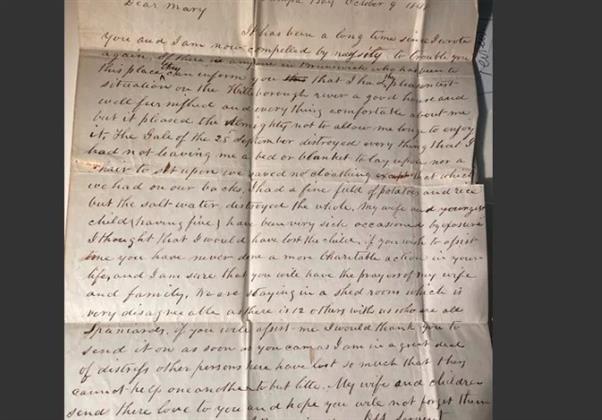 Tampa Bay October 9 184
Dear Mary
It has been a long time since I wrote
you and I am now compelled by nessity to trouble you
again, If there is any one in Brunswick who has been to
this place they can inform you that I had the pleasentest
situation on the Hillborough river a good house and
well furnished and everything comfortable about me
but it pleased the Almighty not to allow me long to enjoy
it. The Gale of the 25 September destroyed every thing that I
had not leaving me a bed or blanket to lay upon nor a
chair to sit upon we saved no cloathing except that which
we had on our backs, I had a fine field of potatoes and rice
but the salt water destroyed the whole. My wife and youngest
child (having five) have been very sick occasioned by exposure
I thought that I would have lost the child, if you wish to assist
me you have never done a more Charitable action in your
life, and I am sure that you will have the prayers of my wife
and family, We are staying in a shed room which is
very disagreeable as there is 12 others with us who are all
Spaniards, if you will assist me I would thank you to
send it on as soon as you can as I am in a great deal
of distress other persons here have lost so much that they
cannot help one another to but little. My wife and children
send there love to you and hope you will not forget them